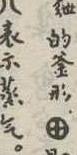 细的釜形，⊕
八表示蒸气。